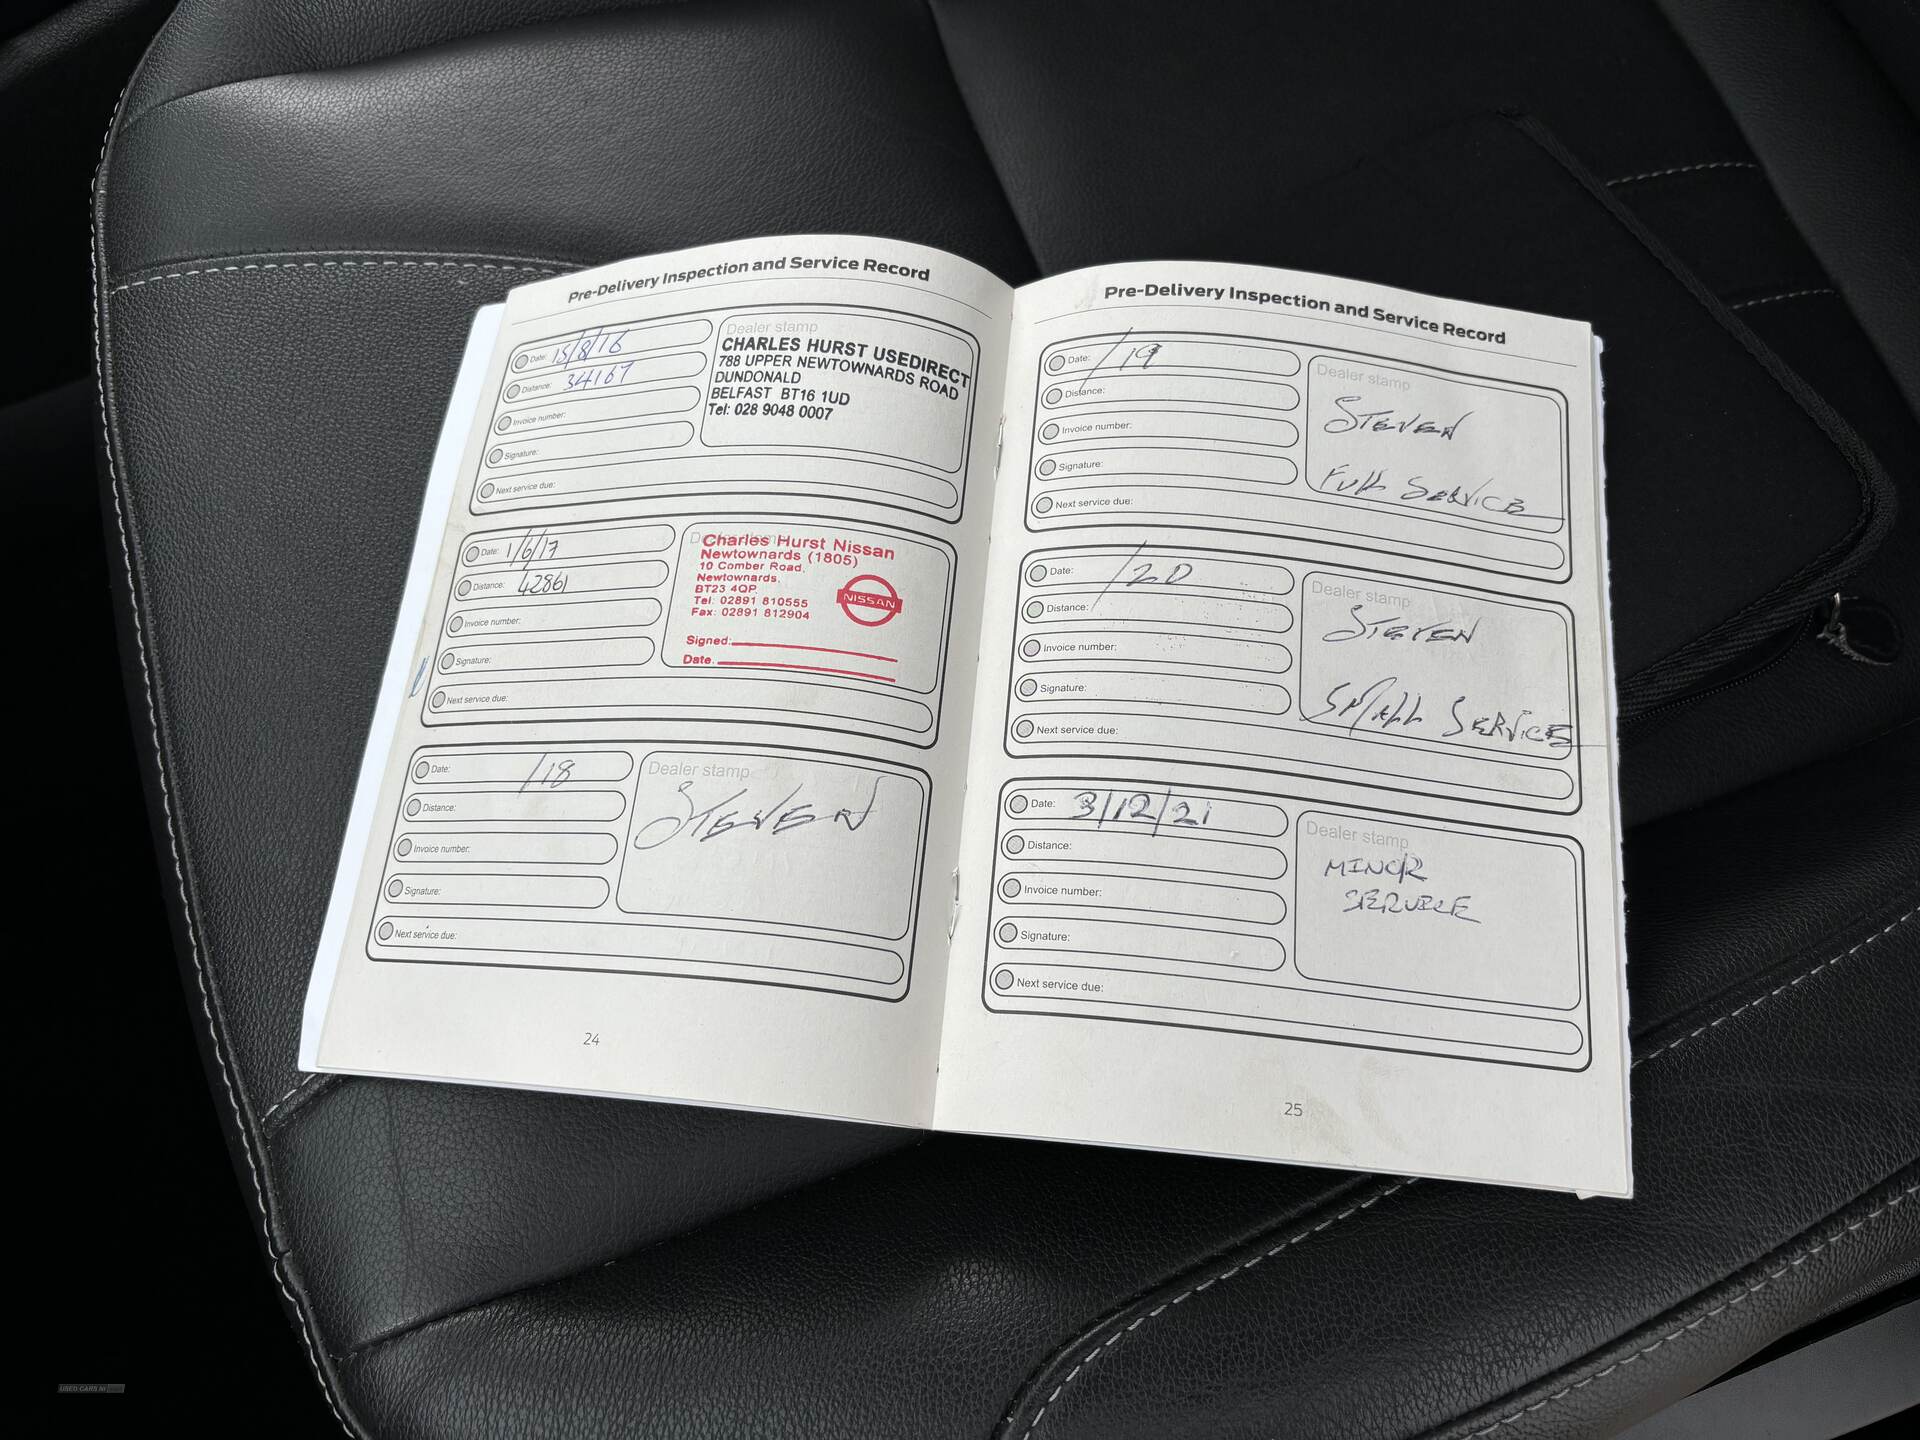 Pre-Delivery Inspection and Service Record
Date: 15/8/16
Distance: 34167
Invoice number:
Signature:
Next service due:
Dealer stamp
CHARLES HURST USEDIRECT
788 UPPER NEWTOWNARDS ROAD
DUNDONALD
BELFAST BT16 1UD
Tel: 028 9048 0007
Date: 1/6/17
Distance: 42861
Invoice number:
Signature:
Next service due:
Charles Hurst Nissan
Newtownards (1805)
10 Comber Road,
Newtownards,
BT23 4QP.
Tel: 02891 810555
Fax: 02891 812904
NISSAN
Signed:
Date.
Date: /18
Distance:
Invoice number:
Signature:
Next service due:
Dealer stamp
STEVEN
24
Pre-Delivery Inspection and Service Record
Date: /19
Distance:
Invoice number:
Signature:
Next service due:
Dealer stamp
STEVEN
FULL SERVICE
Date: /20
Distance:
Invoice number:
Signature:
Next service due:
Dealer stamp
STEVEN
SMALL SERVICE
Date: 3/12/21
Distance:
Invoice number:
Signature:
Next service due:
Dealer stamp
MINOR
SERVICE
25
USED CARS NI